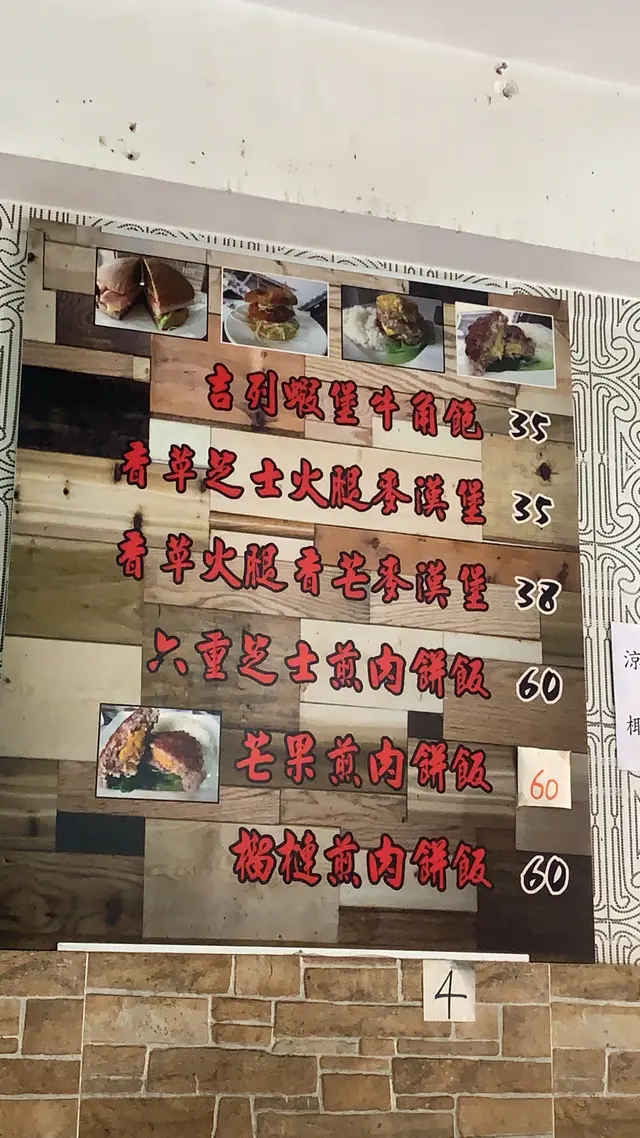 吉列蝦堡牛角飽 35
香草芝士火腿麥漢堡 35
香草火腿香芒麥漢堡 38
六重芝士煎肉餅飯 60
芒果煎肉餅飯 60
榴槤煎肉餅飯 60
4
涼
椰